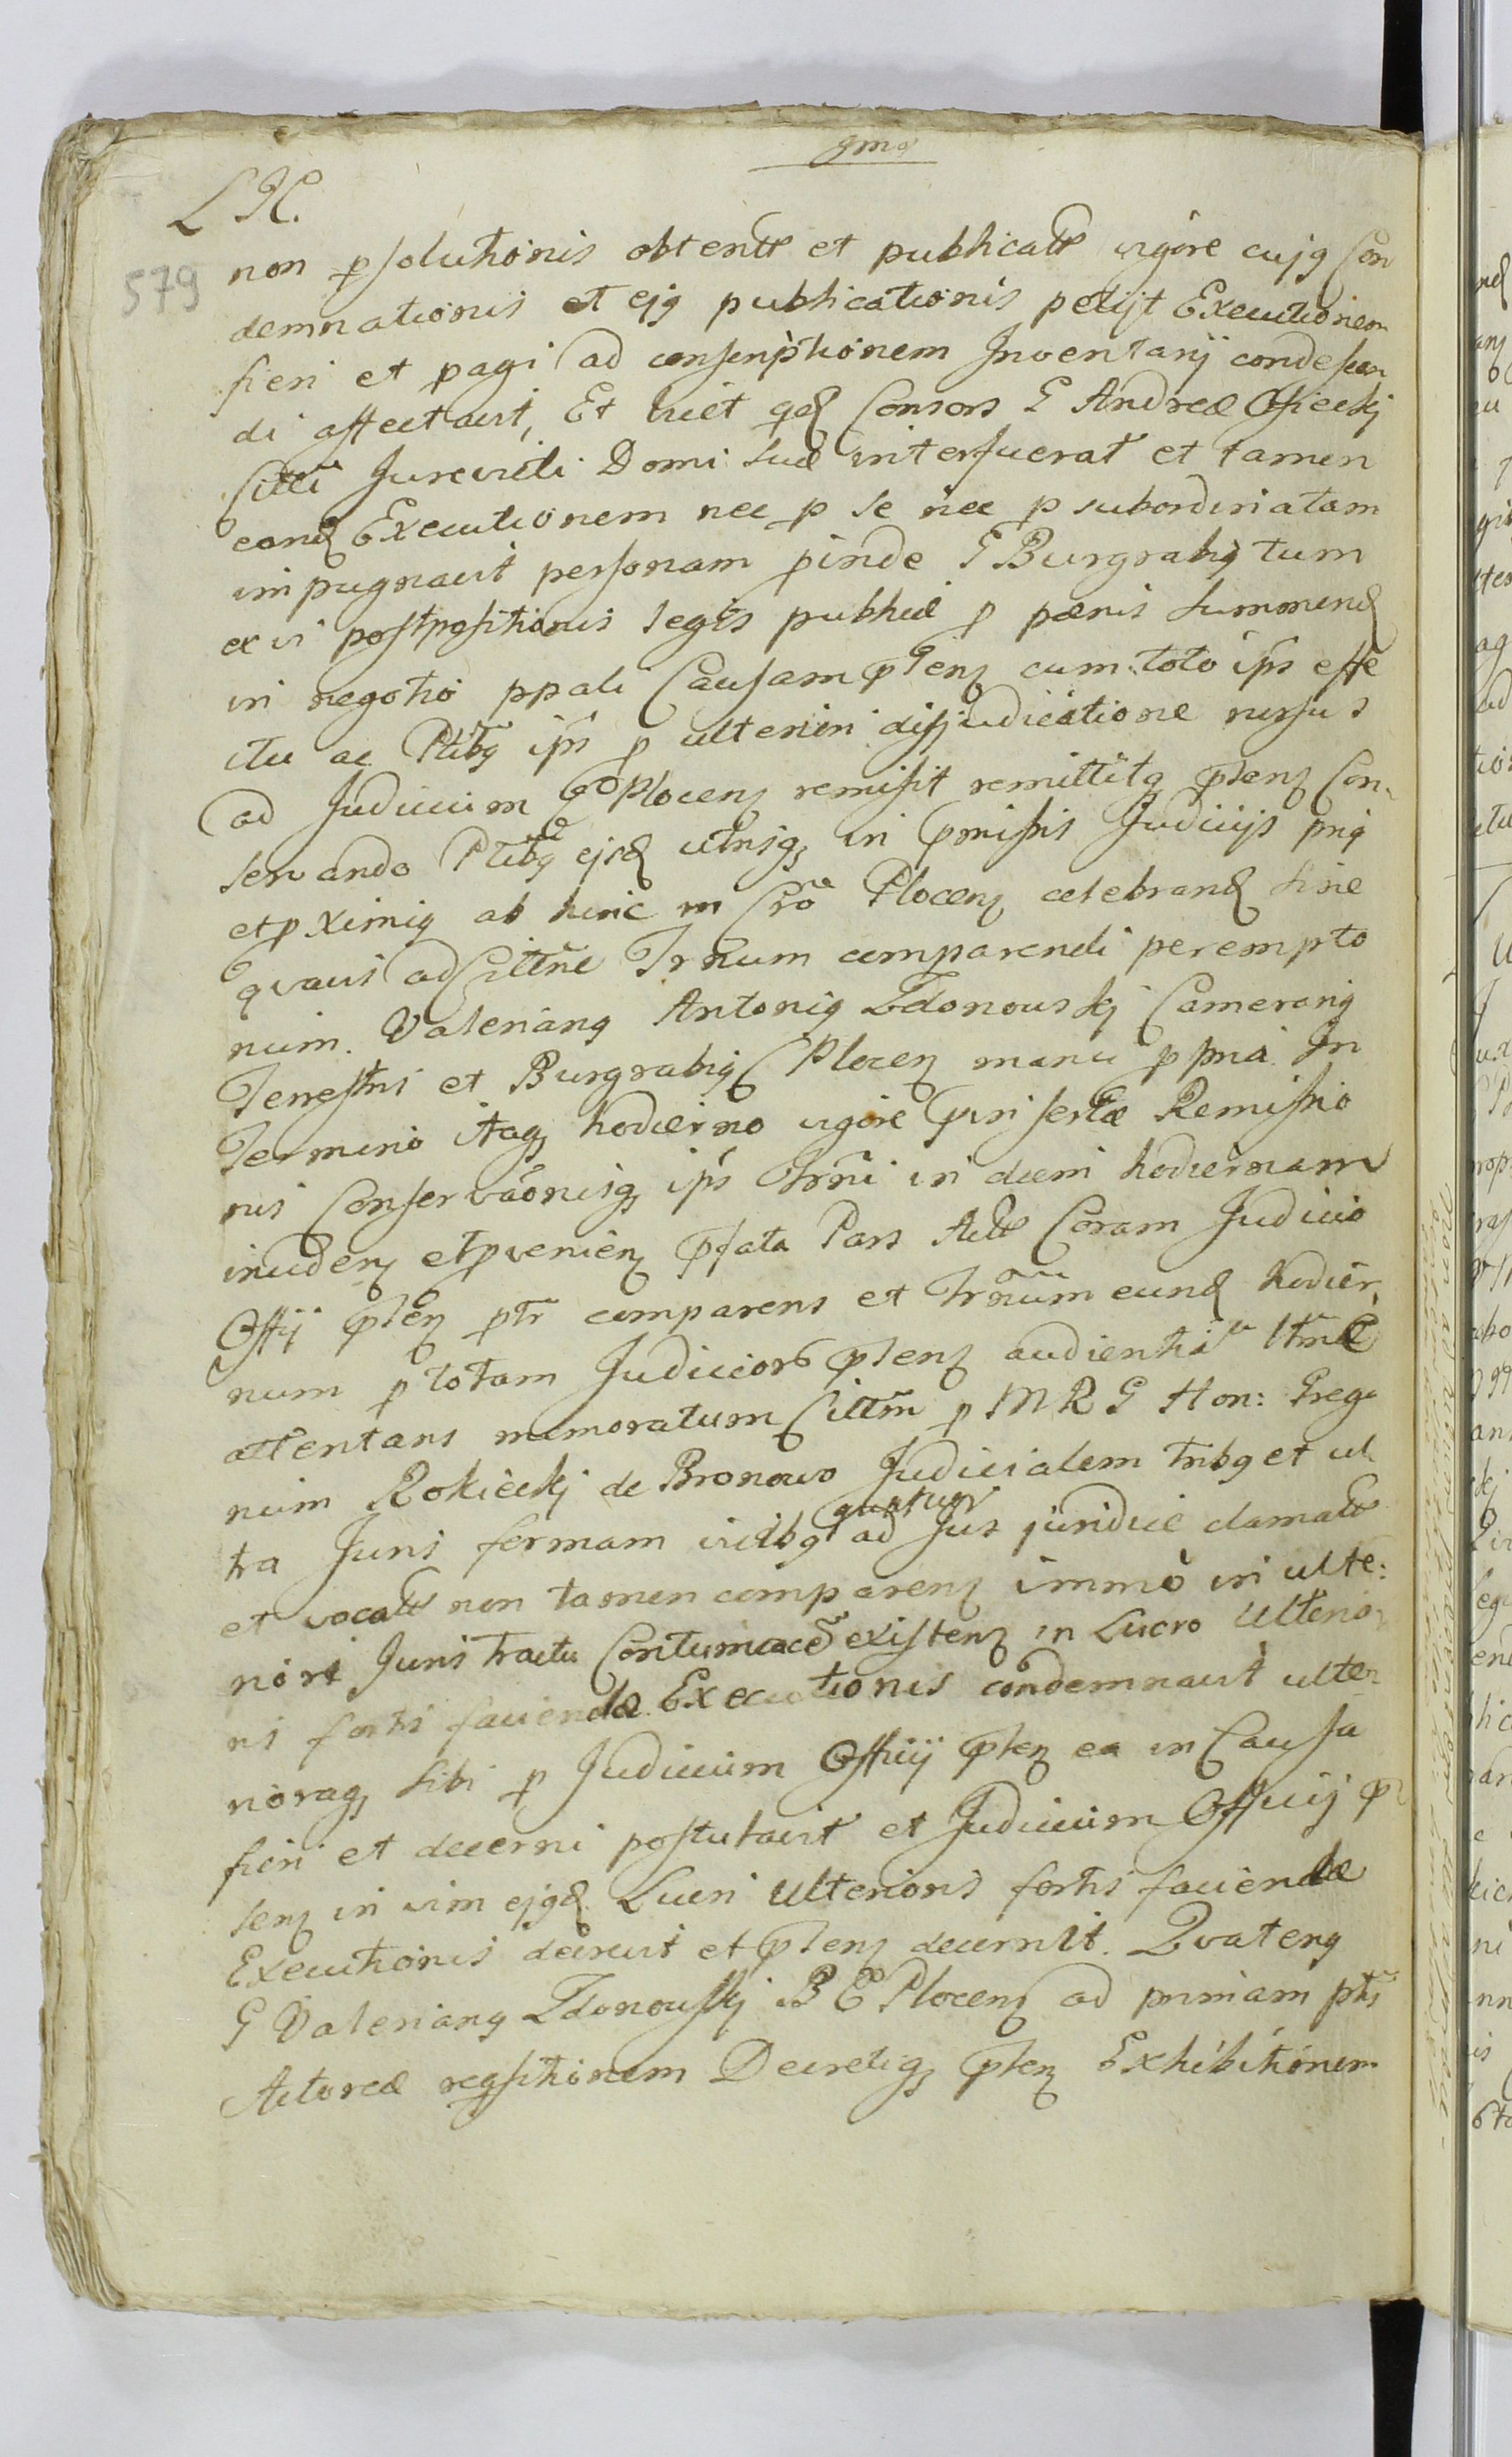 579
non p solutionis obtentt et publicatt vigore cujq Con
demnationis et ejq publicationis petijt Executionem
fieri et pagi ad conscriptionem Inventarij condescen
di affectavit, Et licet qd Consors G Andreæ
Citti Jurevicti Domi suæ interfuerat et tamen
eand Executionem nec p se nec p subordinatam
impugnavit personam pinde G Burgrabiq tum
ex vi postpositionis legis publicæ p pænis summend
in negotio ppali Causam pntem cum toto ips effe
ctu ac Ptibq ips p ulteriori dijudicatione rursus
ad Judicium Plocen remisit remittitq pnten Con
servando Ptibq ejsd utrisq in pmissis Judicijs priq
et pximiq ab hinc in Cro Plocen celebrand sine
quavis ad Cittne Trnum comparendi perempto
rium. Valerianq Antoniq Zdonowskj Camerariq
Terrestris et Burgrabiq Plocen manu ppria In
Termino itaq hodierno vigore prinsertæ Remissio
nis Conservãonisq ips Trni in diem hodiernam
inciden et pvenien pfata Pars Actt Coram Judicio
Offij pnten ptr comparens et Trnum eund hodier
num p totam Judicior pnten audientia ltme
attentans memoratum Cittm p M R G Hon: Greg
rium Rokickj de Bronowo Judicialem tribq et ul
tra Juris formam vicibq quatuor ad Jus juridice clamatt
et vocatt non tamen comparen immò in ulte:
riori Juris tractu Contumace existen in Lucro Ulterio
ris fortis faciendæ Executionis condemnavit ulte
rioraq sibi p Judicium Officij pnten ea in Causa
fieri et decerni postulavit et Judicium Officij p
sen in vim ejqd Lucri Ulterioris fortis faciendæ
Executionis decrevit et pnten decernit. Quatenq
G Valerianq Zdonowskj B C Plocen ad primam ptis
Actoreæ reqsitionem Decretiq pnten Exhibitionem